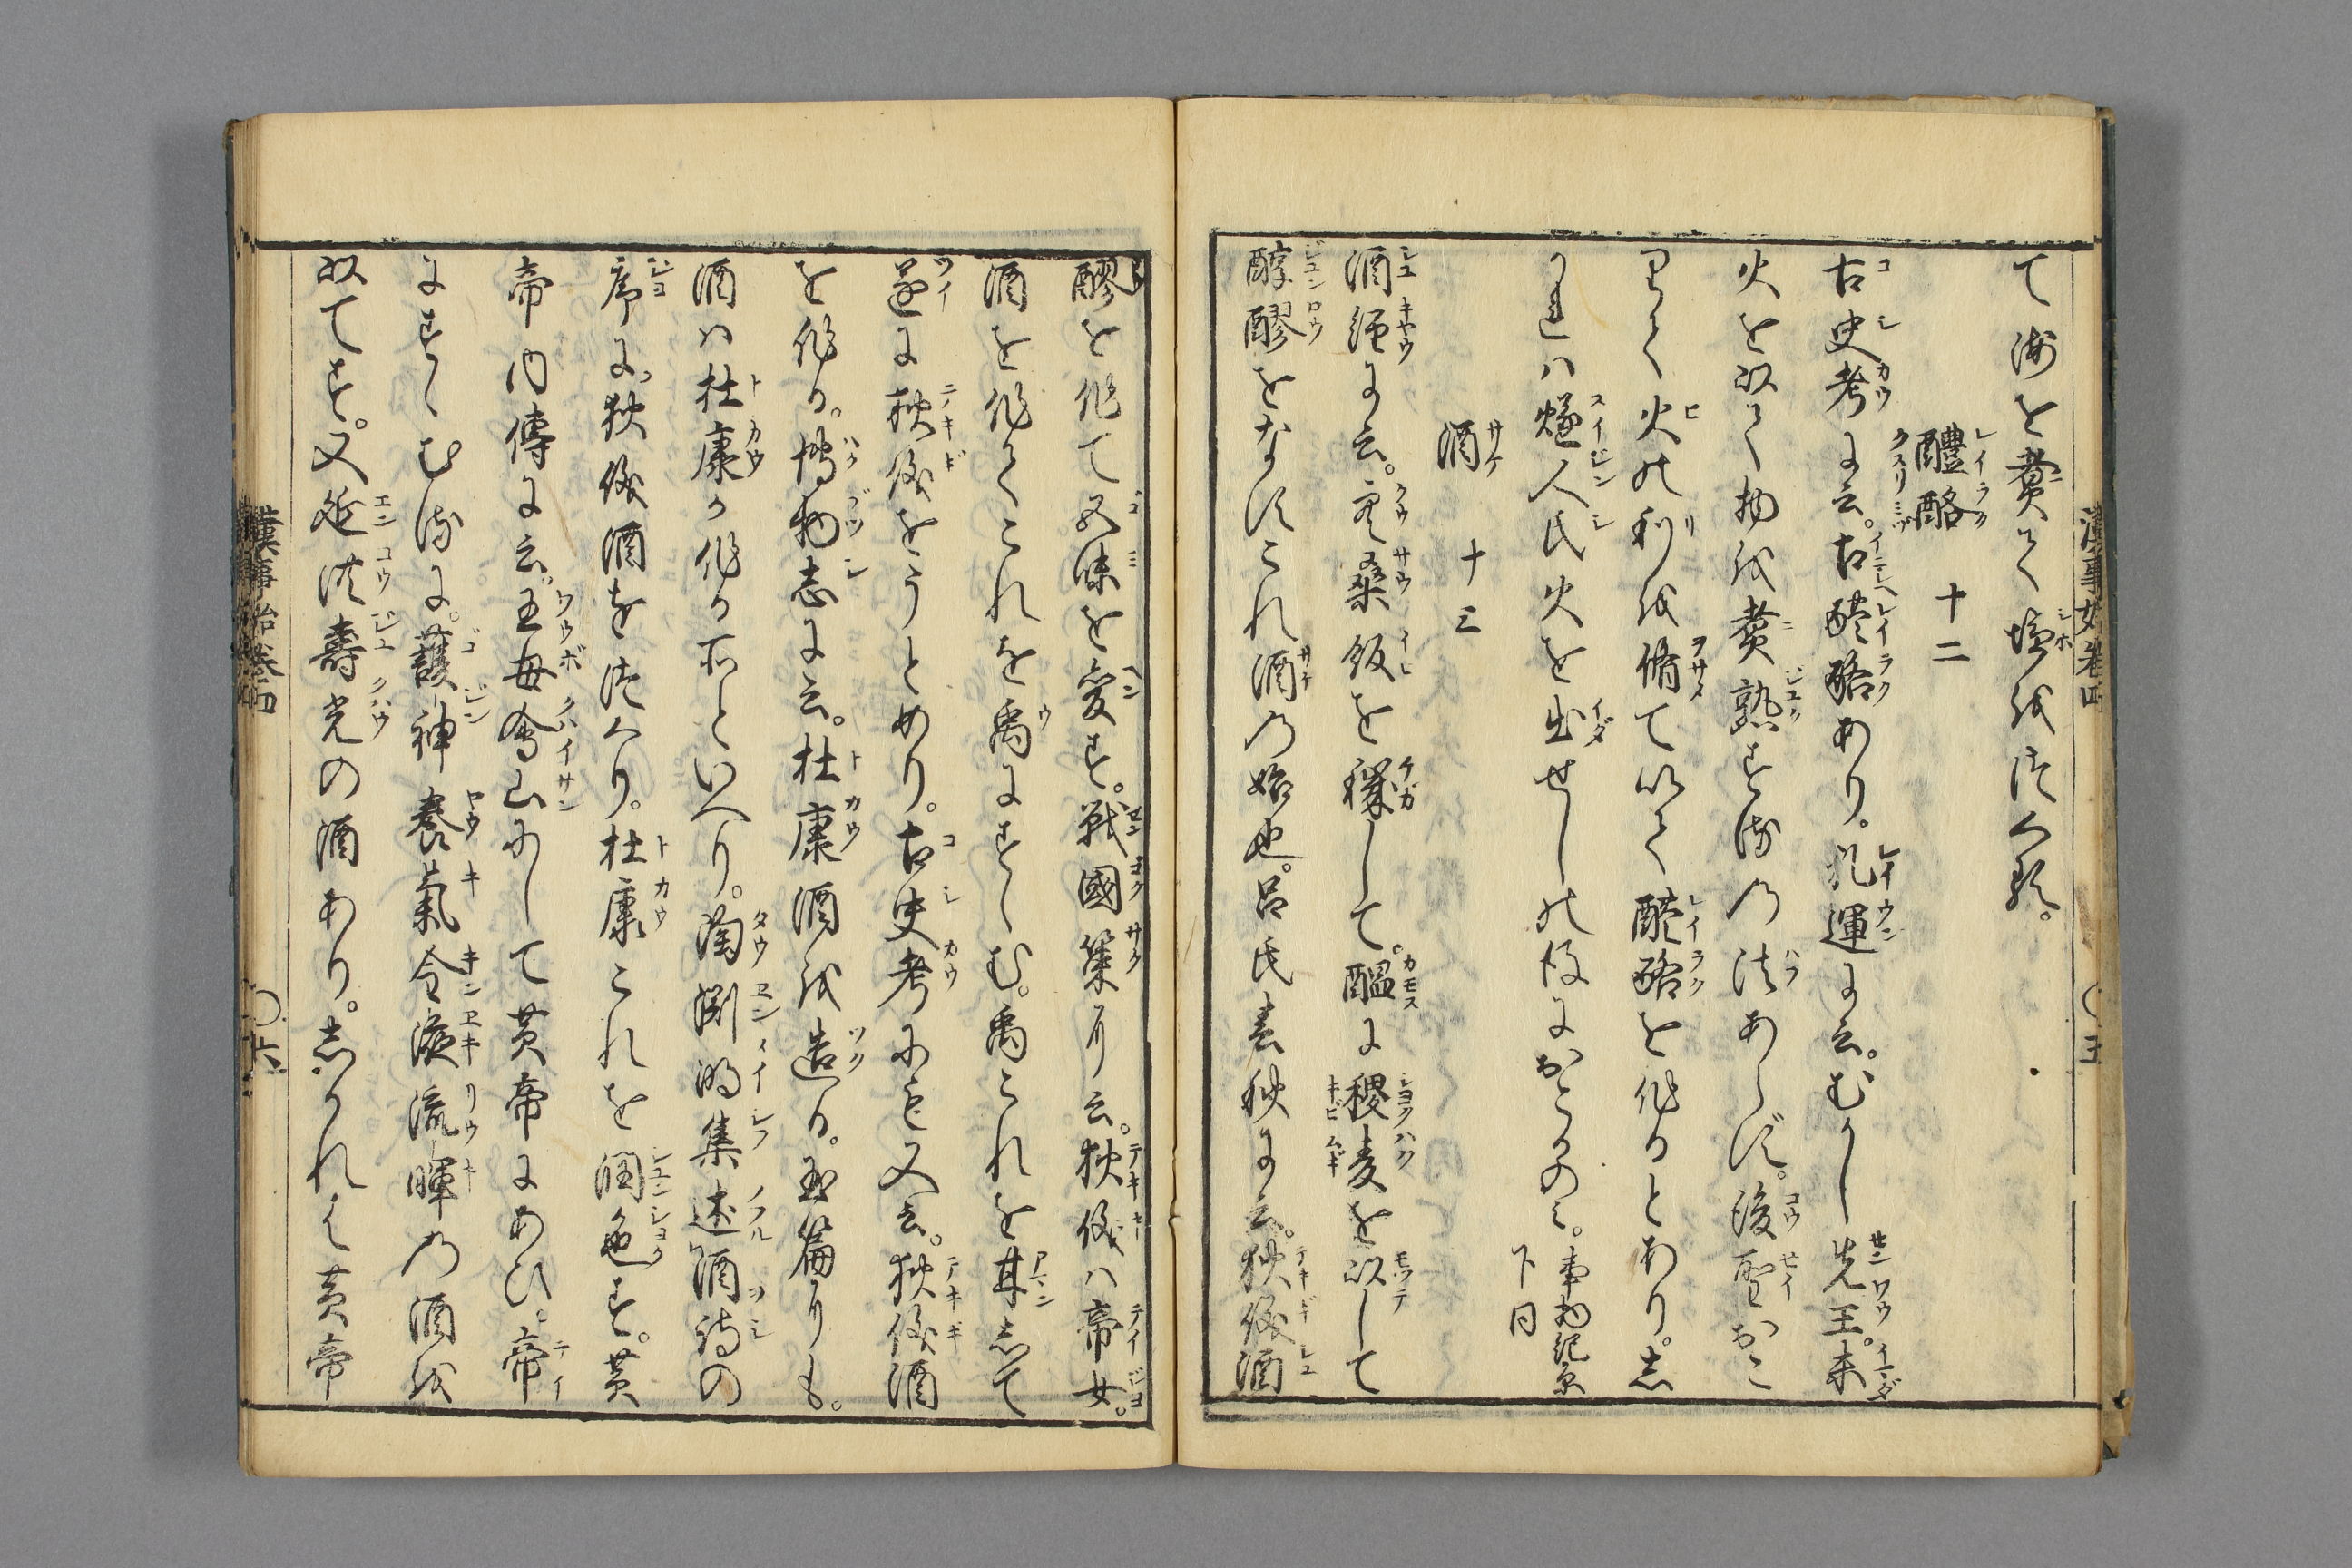 漢事始巻四 〇五
て海を煑て塩を作る。
醴酪 レイラク クスリミヅ 十二
古史考に云。古醴酪あり。礼運に云。むかし先王。未
火を以て物を煑熟するの法あらず。後聖おこ
りて火の利を脩て以て醴酪を作るとあり。志
かれは燧人氏火を出せしの後におこるのミ。事物紀原下同
酒 サケ 十三
酒経に云。空桑飯を穢して。醞に稷麦を以して
醇醪をなすこれ酒の始也。呂氏春秋に云。狄儀酒
醪を作て五味を変ず。戦國策ニ云。狄儀ハ帝女。
酒を作てこれを禹にすゝむ。禹これを甘志て
遂に狄儀をうとめり。古史考にも又云。狄儀酒
を作る。博物志に云。杜康酒を造る。玉篇にも。
酒ハ杜康が作る所といへり。陶淵明集述酒詩の
序に。狄儀酒を造れり。杜康これを潤色す。黄
帝内傳に云。王母會山にして黄帝にあひ。帝
にすゝむるに。護神養氣金液流暉の酒を
以てす。又延洪壽光の酒あり。志かれば黄帝
漢事始巻四 〇六